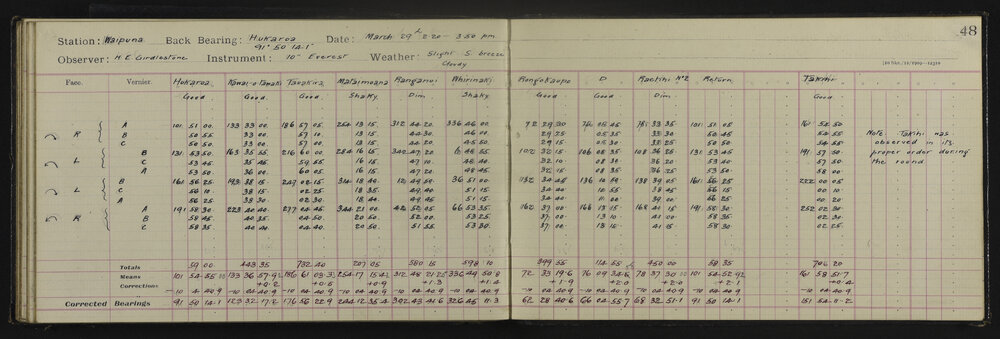 48
Station: Waipuna Back Bearing: Hukaroa 91° 50 14.1" Date: March 29th 2.20 - 3.50 pm
Observer: H.E. Girdlestone Instrument: 10" Everest Weather: Slight S. breeze Cloudy
Face. Vernier. Hukaroa Tanakira Mataimoana Ranganui Whirinaki Rangokaupo D Raetihi No2 Return Takihi
Good Good Good Shaky Dim Shaky Good Good Dim Good Good
R A 101 51 00 133 33 00 186 57 05 254 13 15 312 44 20 336 46 00 72 29 30 76 05 45 78 33 35 101 51 05 161 54 50
B 50 55 33 00 57 10 13 15 44 30 46 00 29 25 05 35 33 30 50 45 54 55
C 50 50 33 00 57 00 13 15 44 20 45 50 29 15 05 30 50 50 54 55
L B 131 53 50 163 35 55 216 60 00 284 16 15 342 47 20 102 32 15 106 08 35 108 36 25 131 53 45 191 57 50
C 53 45 35 45 59 55 16 15 47 10 48 40 32 10 08 30 36 20 53 40 57 50
A 53 50 36 00 60 05 16 15 47 20 48 45 32 15 08 35 36 25 53 50 58 00
L B 161 56 25 193 38 15 247 02 15 314 18 40 12 49 50 36 51 00 132 34 45 136 10 59 138 39 05 161 56 25 222 00 05
C 56 10 38 15 02 25 18 35 49 40 51 15 34 40 10 55 38 45 56 15 00 10
A 56 25 38 30 02 30 18 40 49 45 51 15 34 40 11 00 39 00 56 25 00 20
R A 191 58 30 223 40 40 277 04 45 344 21 00 42 52 05 66 53 35 162 37 00 166 13 15 168 41 15 191 58 30 252 02 30
B 58 45 40 35 04 50 20 50 52 00 53 25 37 00 13 10 41 00 58 35 02 30
C 58 35 40 40 04 40 20 50 51 55 53 30 37 00 13 15 41 15 58 30 02 30
Note. Takihi was
observed in its
proper order during
the round.
Totals 59 00 443 35 732 40 207 05 580 15 598 10 399 55 114 55 450 00 58 35 706 20
Means 101 54 55.00 133 36 57.92 254 17 15.42 312 48 21.25 336 49 50.8 72 33 19.6 76 09 34.6 78 37 30.00 101 54 52.92 161 58 51.7
Corrections +0.2 +0.5 +0.9 +1.3 +1.4 +1.9 +2.0 +2.0 +2.1 +0.4
-10 4 40.9 -10 04 40.9 -10 04 40.9 -10 04 40.9 -10 04 40.9 -10 04 40.9 -10 04 40.9 -10 04 40.9 -10 04 40.9 -10 04 40.9 -10 04 40.9
Corrected Bearings 91 50 14.1 123 32 17.2 176 56 22.9 244 12 35.4 302 43 41.6 326 45 11.3 62 28 40.6 66 04 55.7 68 32 51.1 91 50 14.1 151 54 11.2